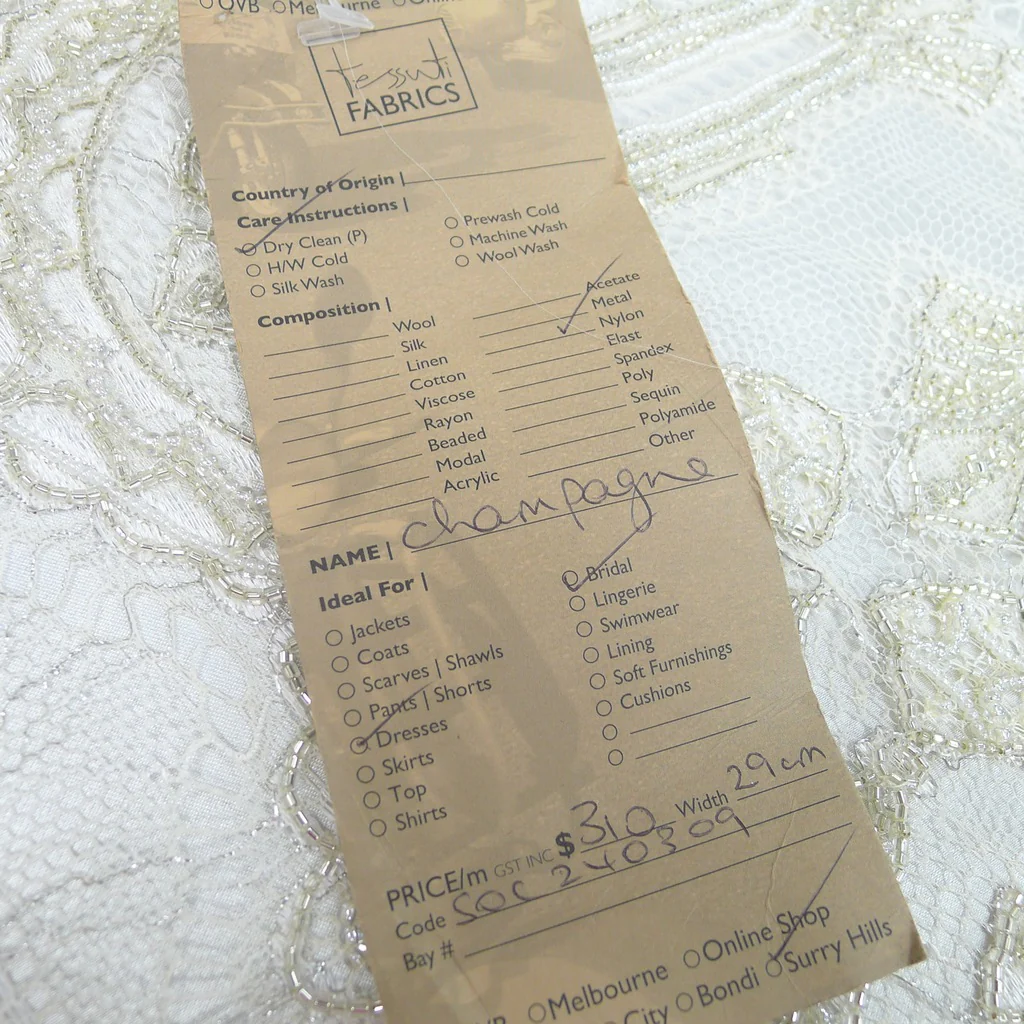 QVB Melbourne Online
Tessuti
FABRICS
Country of Origin |
Care Instructions |
Dry Clean (P)
H/W Cold
Silk Wash
Prewash Cold
Machine Wash
Wool Wash
Composition |
Wool
Silk
Linen
Cotton
Viscose
Rayon
Beaded
Modal
Acrylic
Acetate
Metal
Nylon
Elast
Spandex
Poly
Sequin
Polyamide
Other
NAME | champagne
Ideal For |
Jackets
Coats
Scarves | Shawls
Pants | Shorts
Dresses
Skirts
Top
Shirts
Bridal
Lingerie
Swimwear
Lining
Soft Furnishings
Cushions
PRICE/m GST INC $310 Width 29cm
Code SOC 240309
Bay #
Melbourne Online Shop
City Bondi Surry Hills